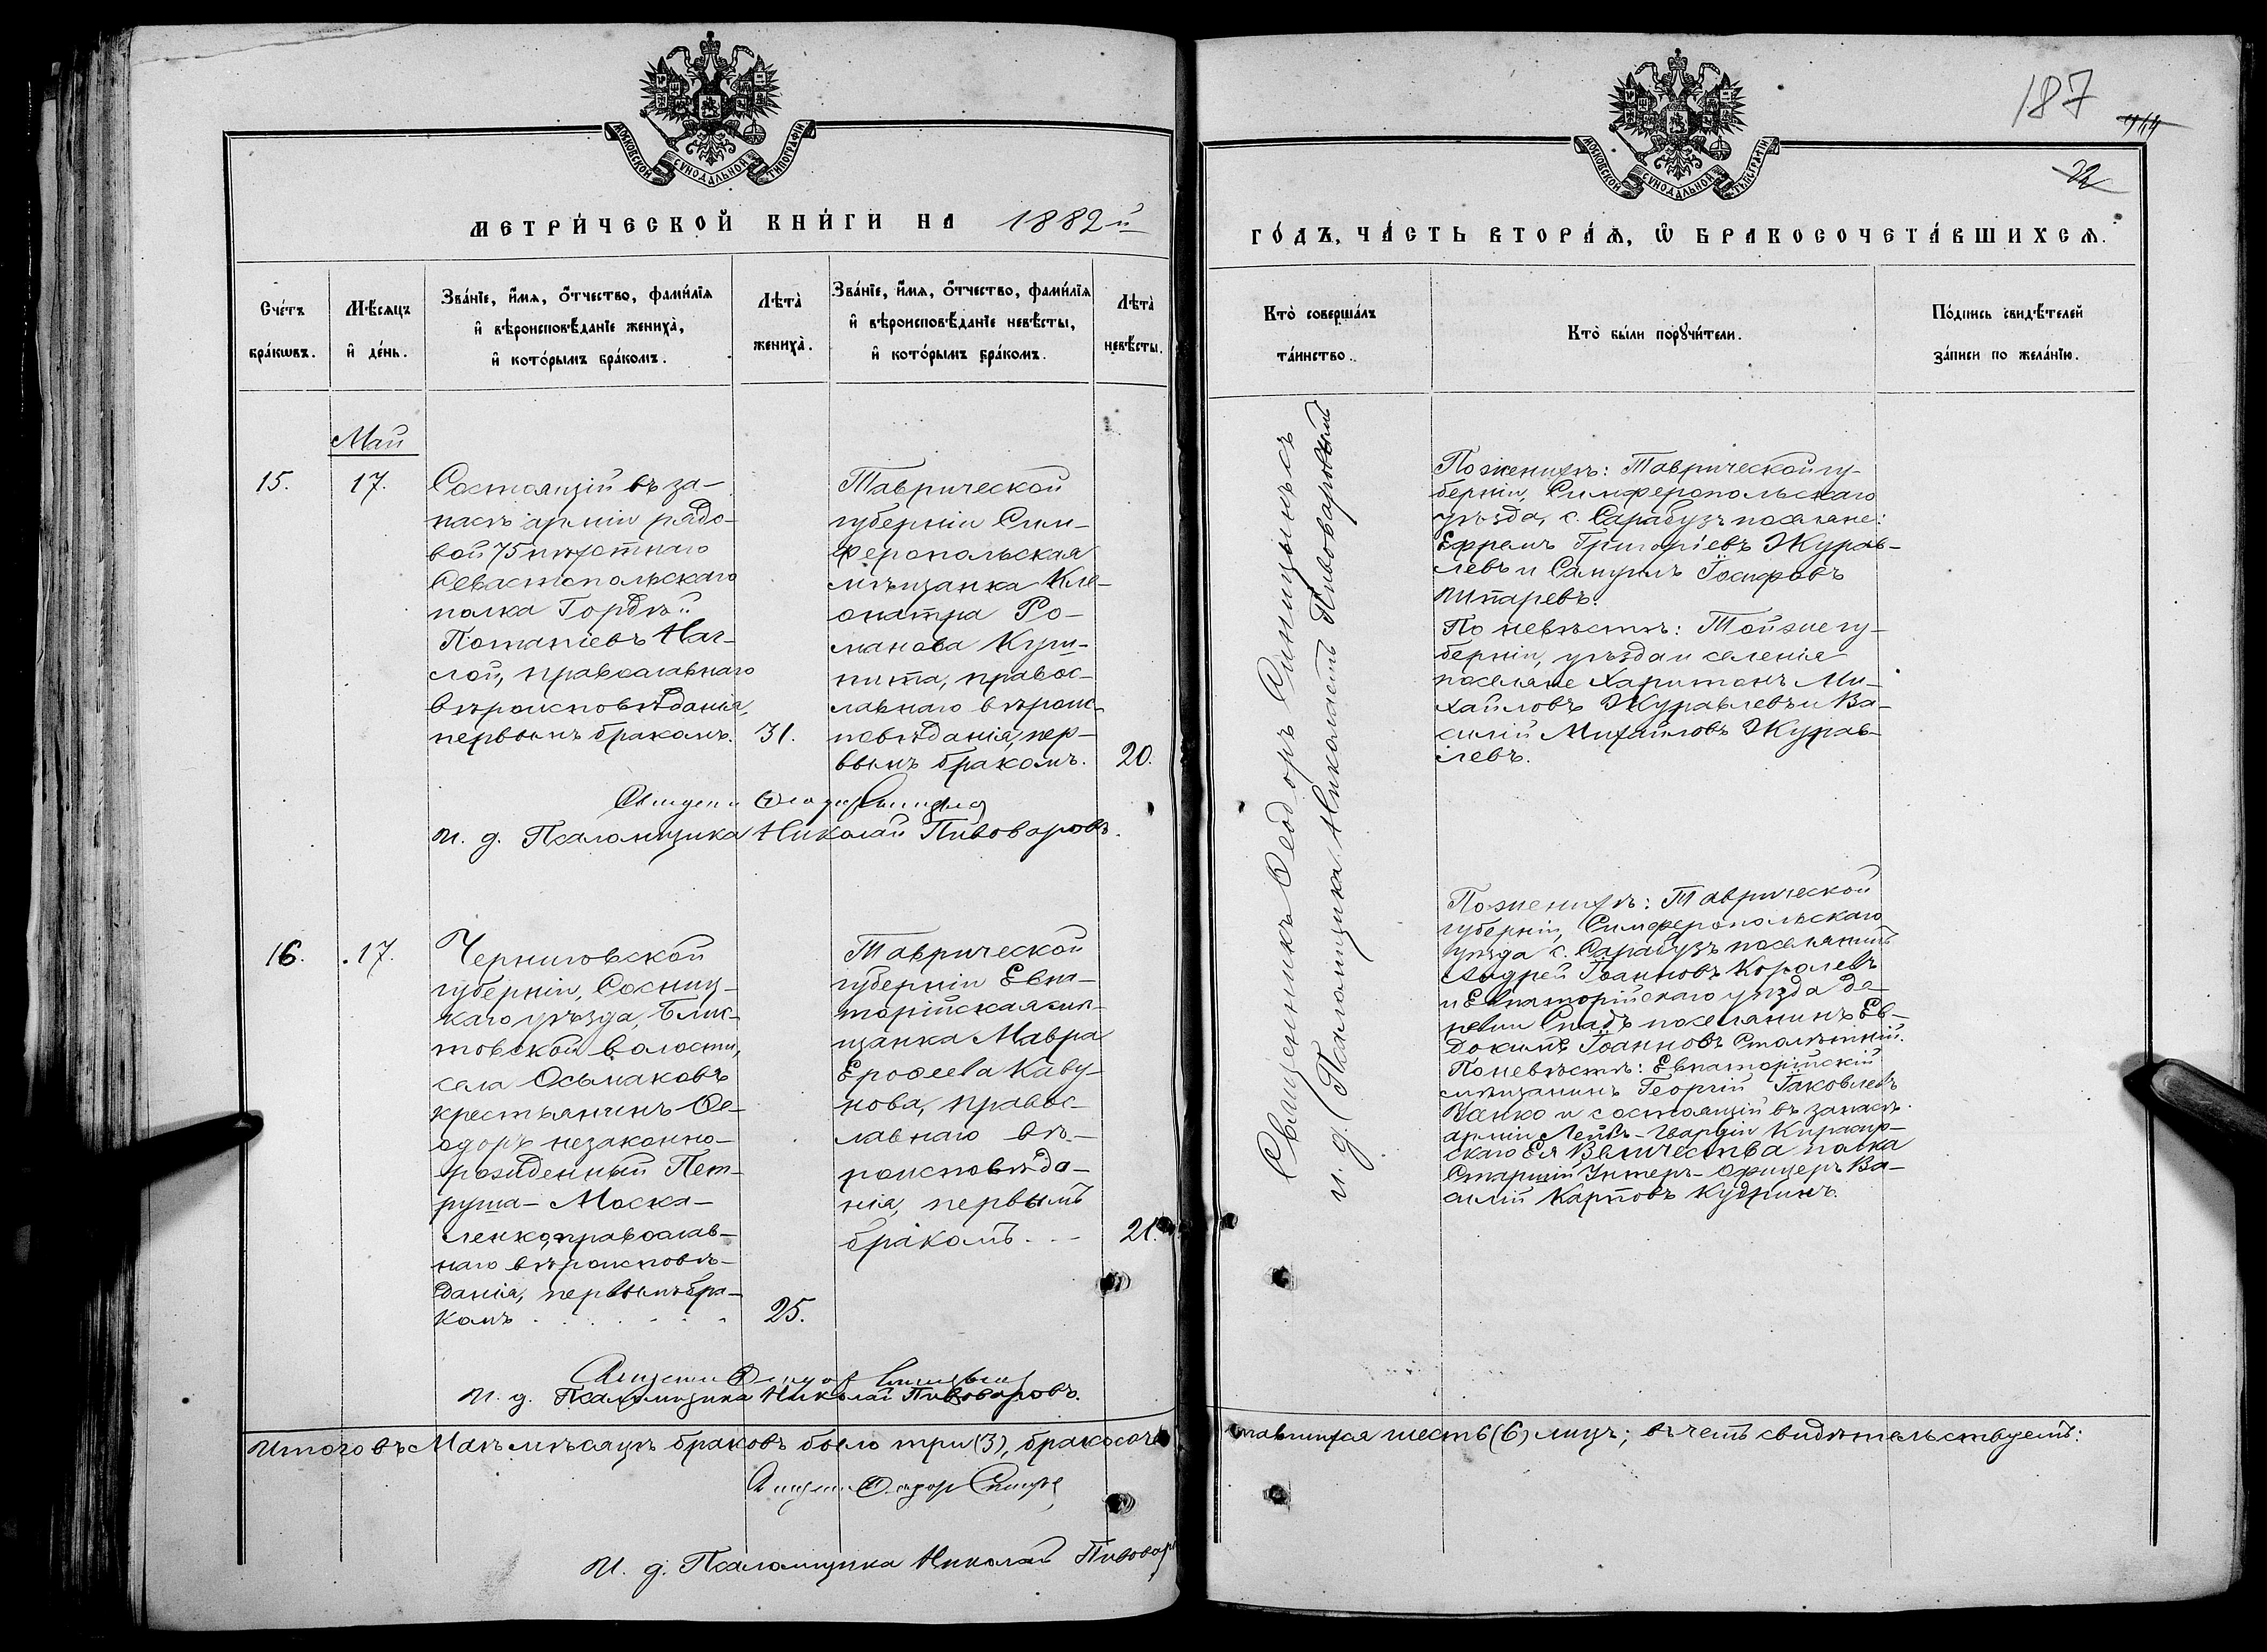 МОСКОВСКОЙ СѴНОДАЛЬНОЙ ТИПОГРАФІИ
МЕТРИ́ЧЕСКОЙ КНИ́ГИ НА 1882й
Сче́тъ бра́кωвъ.
Мѣ́сяцъ и҆ де́нь.
Зва́нїе, и҆́мѧ, ѻ҆́тчество, фами́лїѧ
и҆ вѣроисповѣ́данїе жениха̀,
и҆ кото́рымъ бра́комъ.
Лѣта̀ жениха̀.
Зва́нїе, и҆́мѧ, ѻ҆́тчество, фами́лїѧ
и҆ вѣроисповѣ́данїе невѣ́сты,
и҆ кото́рымъ бра́комъ.
Лѣта̀ невѣ́сты.
Май
15.
17.
Состоящій въ за-
пасѣ арміи рядо-
вой 75 пѣхотнаго
Севастопольскаго
полка Гордѣй
Потапіевъ Наг-
лой, православнаго
вѣроисповѣданія,
первымъ бракомъ.
31.
Таврической
губерніи Сим-
феропольская
мѣщанка Кле-
опатра Ро-
манова
пита, правос-
лавнаго вѣроис-
повѣданія, пер-
вымъ бракомъ.
20.
И. д. Псаломщика Николай Пивоваровъ.
16.
17.
Черниговской
губерніи, Сосниц-
каго уѣзда, Блис-
товской волости,
села Осьмаковъ
крестьянинъ Ѳе-
одоръ незаконно-
рожденный Пет-
руша-Моска-
ленко, православ-
наго вѣроисповѣ-
данія, первымъ бра-
комъ
25.
Таврической
губерніи Евпа-
торійская мѣ-
щанка Мавра
Ероѳеева Каву-
нова, правос-
лавнаго вѣ-
роисповѣда-
нія, первымъ
бракомъ
21.
И. д. Псаломщика Николай Пивоваровъ.
Итого въ Маѣ мѣсяцѣ браковъ было три (3), бракосоче
И. д. Псаломщика Николай Пивовар
187
МОСКОВСКОЙ СѴНОДАЛЬНОЙ ТИПОГРАФІИ
ГО́ДЪ, ЧА́СТЬ ВТОРА́Ѧ, Ѡ҆ БРАКОСОЧЕТА́ВШИХСѦ.
Кто̀ соверша́лъ
та́инство.
Кто̀ бы́ли порꙋчи́тели.
По́дпись свидѣ́телей
за́писи по жела́нїю.
Священникъ Ѳеодоръ Синицынъ съ
и. д. Псаломщика Николаемъ Пивоваровымъ
По женихѣ: Таврической гу-
берніи, Симферопольскаго
уѣзда, с. Сарабузъ поселяне:
Ефремъ Григоріевъ Журав-
левъ и Самуилъ Іосифовъ
Шпаревъ.
По невѣстѣ: Той же гу-
берніи, уѣзда и селенія
поселяне Харитонъ Ми-
хайловъ Журавлевъ и Ва-
силій Михайловъ Журав-
левъ.
По женихѣ: Таврической
губерніи, Симферопольскаго
уѣзда с. Сарабузъ поселянинъ
Андрей Іоанновъ Королевъ
и Евпаторійскаго уѣзда де-
ревни Спатъ поселянинъ Ев-
докимъ Іоанновъ Столѣтній.
По невѣстѣ: Евпаторійскій
мѣщанинъ Георгій Іаковлевъ
и состоящій въ запасѣ
арміи Лейбъ-Гвардіи Кирасир-
скаго Ея Величества полка
Старшій Унтеръ-Офицеръ Ва-
силій Карповъ Кудринъ.
тавшихся шесть (6) лицъ; въ чемъ свидѣтельствуемъ: